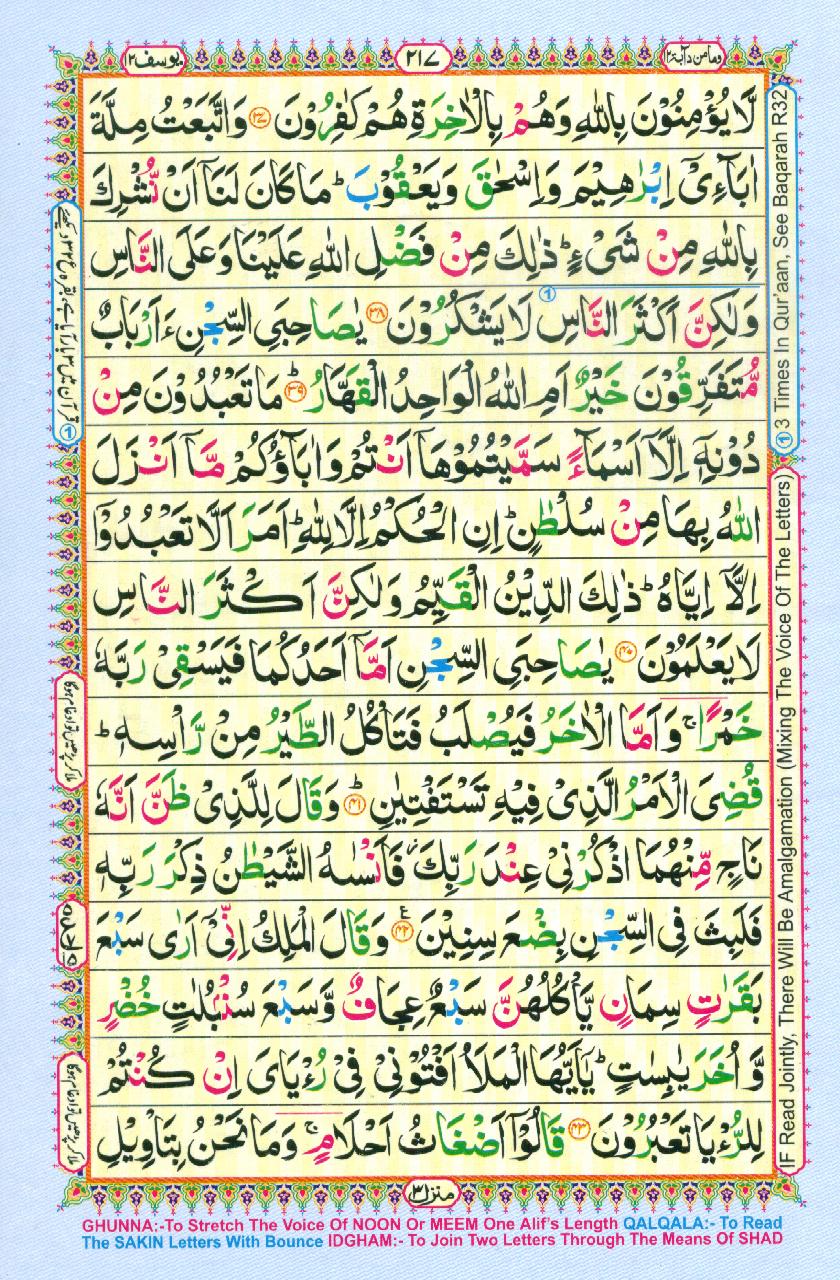 وما من دآبة ١٢
٢١٧
يوسف ١٢
لَا يُؤْمِنُوْنَ بِاللّٰهِ وَهُمْ بِالْاٰخِرَةِ هُمْ كٰفِرُوْنَ ﴿٣٧﴾ وَاتَّبَعْتُ مِلَّةَ
اٰبَآءِىْٓ اِبْرٰهِيْمَ وَاِسْحٰقَ وَيَعْقُوْبَ ؕ مَا كَانَ لَنَآ اَنْ نُّشْرِكَ
بِاللّٰهِ مِنْ شَىْءٍ ؕ ذٰلِكَ مِنْ فَضْلِ اللّٰهِ عَلَيْنَا وَعَلَى النَّاسِ
وَلٰكِنَّ اَكْثَرَ النَّاسِ ① لَا يَشْكُرُوْنَ ﴿٣٨﴾ يٰصَاحِبَىِ السِّجْنِ ءَاَرْبَابٌ
مُّتَفَرِّقُوْنَ خَيْرٌ اَمِ اللّٰهُ الْوَاحِدُ الْقَهَّارُ ﴿٣٩﴾ؕ مَا تَعْبُدُوْنَ مِنْ
دُوْنِهٖٓ اِلَّآ اَسْمَآءً سَمَّيْتُمُوْهَآ اَنْتُمْ وَاٰبَآؤُكُمْ مَّآ اَنْزَلَ
اللّٰهُ بِهَا مِنْ سُلْطٰنٍ ؕ اِنِ الْحُكْمُ اِلَّا لِلّٰهِ ؕ اَمَرَ اَلَّا تَعْبُدُوْٓا
اِلَّآ اِيَّاهُ ؕ ذٰلِكَ الدِّيْنُ الْقَيِّمُ وَلٰكِنَّ اَكْثَرَ النَّاسِ
لَا يَعْلَمُوْنَ ﴿٤٠﴾ يٰصَاحِبَىِ السِّجْنِ اَمَّآ اَحَدُكُمَا فَيَسْقِىْ رَبَّهٗ
خَمْرًا ۚ وَاَمَّا الْاٰخَرُ فَيُصْلَبُ فَتَاْكُلُ الطَّيْرُ مِنْ رَّاْسِهٖ ؕ
قُضِىَ الْاَمْرُ الَّذِىْ فِيْهِ تَسْتَفْتِيٰنِ ﴿٤١﴾ؕ وَقَالَ لِلَّذِىْ ظَنَّ اَنَّهٗ
نَاجٍ مِّنْهُمَا اذْكُرْنِىْ عِنْدَ رَبِّكَ فَاَنْسٰىهُ الشَّيْطٰنُ ذِكْرَ رَبِّهٖ
فَلَبِثَ فِى السِّجْنِ بِضْعَ سِنِيْنَ ﴿٤٢﴾ وَقَالَ الْمَلِكُ اِنِّىْٓ اَرٰى سَبْعَ
بَقَرٰتٍ سِمَانٍ يَّاْكُلُهُنَّ سَبْعٌ عِجَافٌ وَّسَبْعَ سُنْۢبُلٰتٍ خُضْرٍ
وَّاُخَرَ يٰبِسٰتٍ ؕ يٰٓاَيُّهَا الْمَلَاُ اَفْتُوْنِىْ فِىْ رُءْيَاىَ اِنْ كُنْتُمْ
لِلرُّءْيَا تَعْبُرُوْنَ ﴿٤٣﴾ قَالُوْٓا اَضْغَاثُ اَحْلَامٍ ۚ وَمَا نَحْنُ بِتَاْوِيْلِ
منزل ٣
① 3 Times In Qur'aan, See Baqarah R32
IF Read Jointly, There Will Be Amalgamation (Mixing The Voice Of The Letters)
GHUNNA:-To Stretch The Voice Of NOON Or MEEM One Alif's Length QALQALA:- To Read
The SAKIN Letters With Bounce IDGHAM:- To Join Two Letters Through The Means Of SHAD